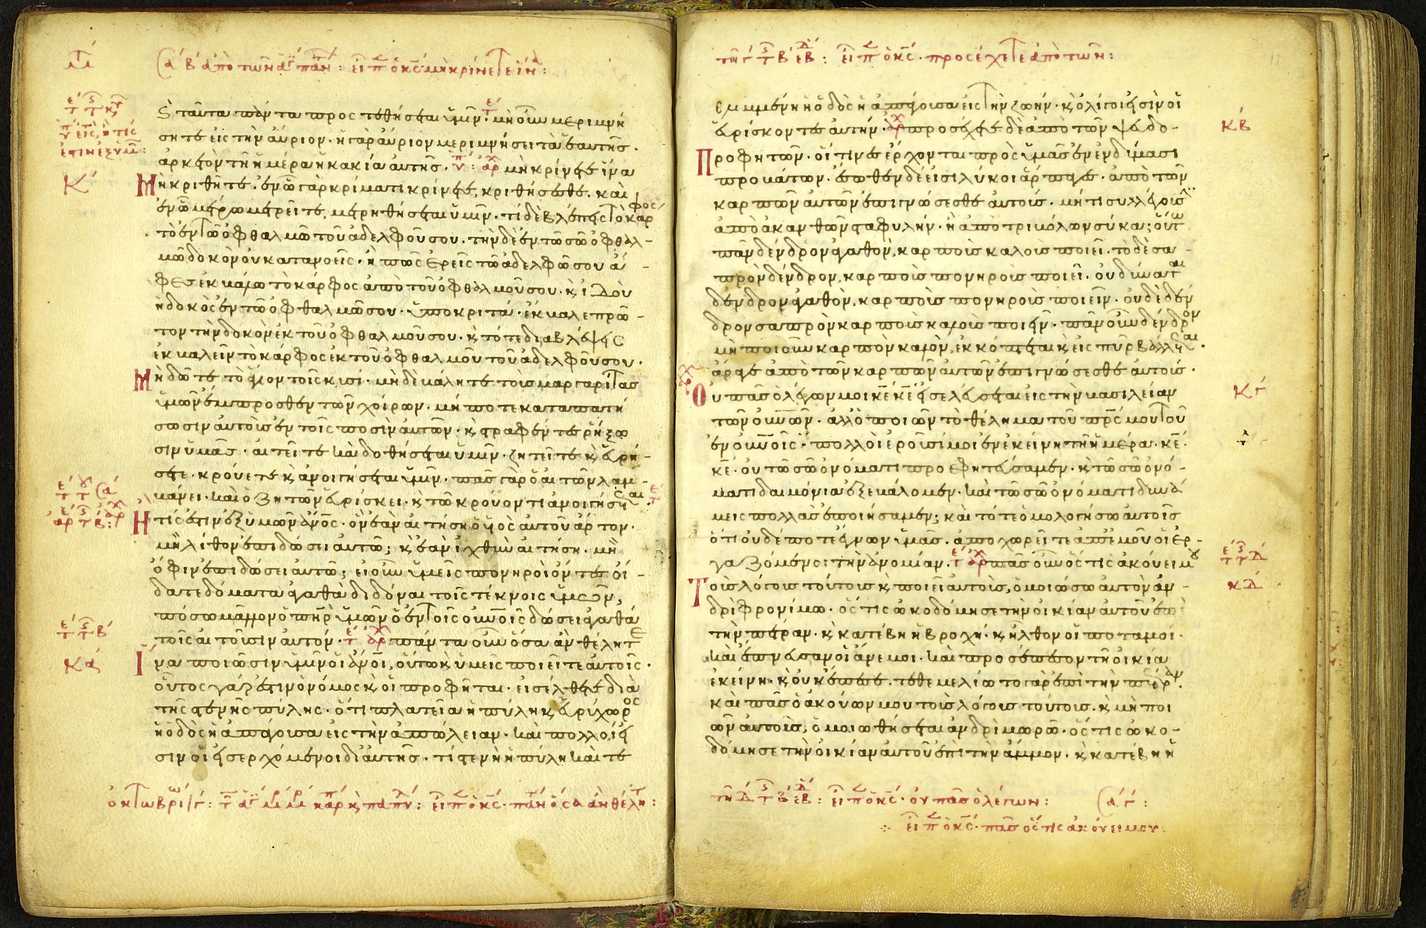 ταῦτα πάντα προστεθήσεται ὑμῖν· μὴ οὖν μεριμνή
σητε εἰς τὴν αὔριον· ἡ γὰρ αὔριον μεριμνήσει τὰ ἑαυτῆς·
ἀρκετὸν τῆ ἡμέρα ἡ κακία αὐτῆς· μὴ κρίνετε ἵνα
Μὴ κριθῆτε· ἐν ὧ γὰρ κρίματι κρίνετε, κριθήσεσθε· καὶ
ἐν ὧ μέτρω μετρεῖτε, μετρηθήσεται ὑμῖν· τί δὲ βλέπεις τὸ κάρφος
τὸ ἐν τῶ ὀφθαλμῶ τοῦ ἀδελφοῦ σου· τὴν δὲ ἐν τῶ σῶ ὀφθαλ-
μῶ δοκὸν οὐ κατανοεῖς· ἢ πῶς ἐρεῖς τῶ ἀδελφῶ σου ἄ-
φες ἐκβάλω τὸ κάρφος ἀπὸ τοῦ ὀφθαλμοῦ σου· κ ἰδοὺ
ἡ δοκὸς ἐν τῶ ὀφθαλμῶ σου· ὑποκριτά· ἔκβαλε πρῶ-
τον τὴν δοκὸν ἐκ τοῦ ὀφθαλμοῦ σου· κ τότε διαβλέψεις
ἐκβαλεῖν τὸ κάρφος ἐκ τοῦ ὀφθαλμοῦ τοῦ ἀδελφοῦ σου·
Μὴ δῶτε τὸ ἅγιον τοῖς κυσί· μὴ δὲ βάλητε τοὺς μαργαρίτας
ὑμῶν ἔμπροσθεν τῶν χοίρων· μήποτε καταπατή
σωσιν αὐτοὺς ἐν τοῖς ποσὶν αὐτῶν· κ στραφέντες ῥήξω
σιν ὑμᾶς· αἰτεῖτε καὶ δοθήσεται ὑμῖν· ζητεῖτε κ εὑρή-
σετε· κρούετε κ ἀνοιγήσεται ὑμῖν· πᾶς γὰρ ὁ αἰτῶν λαμ-
βάνει· καὶ ὁ ζητῶν εὑρίσκει· κ τῶ κρούοντι ἀνοιγήσεται
Ἢ τίς ἐστιν ἐξ ὑμῶν ἄνος· ὃν ἐὰν αἰτήση ὁ υἱὸς αὐτοῦ ἄρτον·
μὴ λίθον ἐπιδώσει αὐτῶ; κ ἐὰν ἰχθὺν αἰτήση· μὴ
ὄφιν ἐπιδώσει αὐτῶ; εἰ οὖν ὑμεῖς πονηροὶ ὄντες οἴ-
δατε δόματα ἀγαθὰ διδόναι τοῖς τέκνοις ὑμῶν,
πόσω μᾶλλον ὁ πηρ ὑμῶν ὁ ἐν τοῖς οὐνοῖς δώσει ἀγαθὰ
τοῖς αἰτοῦσιν αὐτόν· πάντα οὖν ὅσα ἂν θέλητε
Ἵνα ποιῶσιν ὑμῖν οἱ ἄνοι, οὕτω κ ὑμεῖς ποιεῖτε αὐτοῖς·
οὗτος γάρ ἐστιν ὁ νόμος κ οἱ προφῆται· εἰσέλθετε διὰ
τῆς στενῆς πύλης· ὅτι πλατεῖα ἡ πύλη κ εὐρύχωρος
ἡ ὁδὸς ἡ ἀπάγουσα εἰς τὴν ἀπώλειαν· καὶ πολλοί εἰ
σιν οἱ εἰσερχόμενοι δι αὐτῆς· τί στενὴ ἡ πύλη καὶ τε
θλιμμένη ἡ ὁδὸς ἡ ἀπάγουσα εἰς τὴν ζωήν· κ ὀλίγοι εἰσὶν οἱ
εὑρίσκοντες αὐτήν· προσέχετε δὲ ἀπὸ τῶν ψευδο-
Προφητῶν· οἵτινες ἔρχονται πρὸς ὑμᾶς ἐν ἐνδύμασι
προβάτων· ἔσωθεν δέ εἰσι λύκοι ἅρπαγες· ἀπὸ τῶν
καρπῶν αὐτῶν ἐπιγνώσεσθε αὐτούς· μήτι συλλέγουσιν
ἀπὸ ἀκανθῶν σταφυλὴν· ἢ ἀπὸ τριβόλων σύκα; οὕτω
πᾶν δένδρον ἀγαθὸν, καρποὺς καλοὺς ποιεῖ· τὸ δὲ σα-
πρὸν δένδρον, καρποὺς πονηροὺς ποιεῖ· οὐ δύναται
δένδρον ἀγαθὸν, καρποὺς πονηροὺς ποιεῖν· οὐδὲ δέν
δρον σαπρὸν καρποὺς καλοὺς ποιεῖν· πᾶν οὖν δένδρον
μὴ ποιοῦν καρπὸν καλὸν, ἐκκόπτεται κ εἰς πῦρ βάλλεται·
ἄραγε ἀπὸ τῶν καρπῶν αὐτῶν ἐπιγνώσεσθε αὐτούς·
Οὐ πᾶς ὁ λέγων μοι κε κε εἰσελεύσεται εἰς τὴν βασιλείαν
τῶν οὐνων· ἀλλ ὁ ποιῶν τὸ θέλημα τοῦ πρς μου τοῦ
ἐν οὐνοῖς· πολλοὶ ἐροῦσί μοι ἐν ἐκείνη τῆ ἡμέρα· κε
κε· οὐ τῶ σῶ ὀνόματι προεφητεύσαμεν· κ τῶ σῶ ὀνό-
ματι δαιμόνια ἐξεβάλομεν· καὶ τῶ σῶ ὀνόματι δυνά
μεις πολλὰς ἐποιήσαμεν; καὶ τότε ὁμολογήσω αὐτοῖς
ὅτι οὐδέποτε ἔγνων ὑμᾶς· ἀποχωρεῖτε ἀπ ἐμοῦ οἱ ἐρ-
γαζόμενοι τὴν ἀνομίαν· πᾶς οὖν ὅστις ἀκούει μου
Τοὺς λόγους τούτους κ ποιεῖ αὐτοὺς, ὁμοιώσω αὐτὸν ἀν-
δρὶ φρονίμω· ὅστις ὠκοδόμησε τὴν οἰκίαν αὐτοῦ ἐπὶ
τὴν πέτραν· κ κατέβη ἡ βροχὴ· κ ἦλθον οἱ ποταμοὶ·
καὶ ἔπνευσαν οἱ ἄνεμοι· καὶ προσέπεσον τῆ οἰκία
ἐκείνη· κ οὐκ ἔπεσε· τεθεμελίωτο γὰρ ἐπὶ τὴν πέτραν·
καὶ πᾶς ὁ ἀκούων μου τοὺς λόγους τούτους· κ μὴ ποι
ῶν αὐτοὺς, ὁμοιωθήσεται ἀνδρὶ μωρῶ· ὅστις ὠκο-
δόμησε τὴν οἰκίαν αὐτοῦ ἐπὶ τὴν ἄμμον· κ κατέβη ἡ